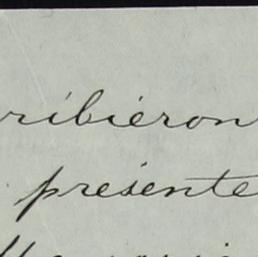 ribiéron
presente